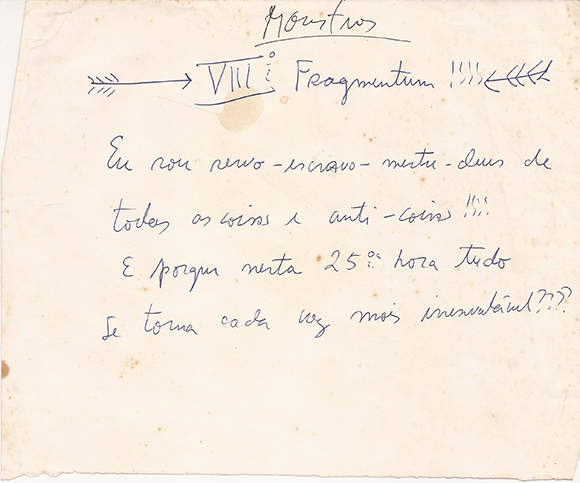 Monstros
VIII º Fragmentum !!!!
Eu sou servo-escravo-mestre-deus de
todas as coisas e anti-coisas !!!!
E porque nesta 25ª hora tudo
se torna cada vez mais